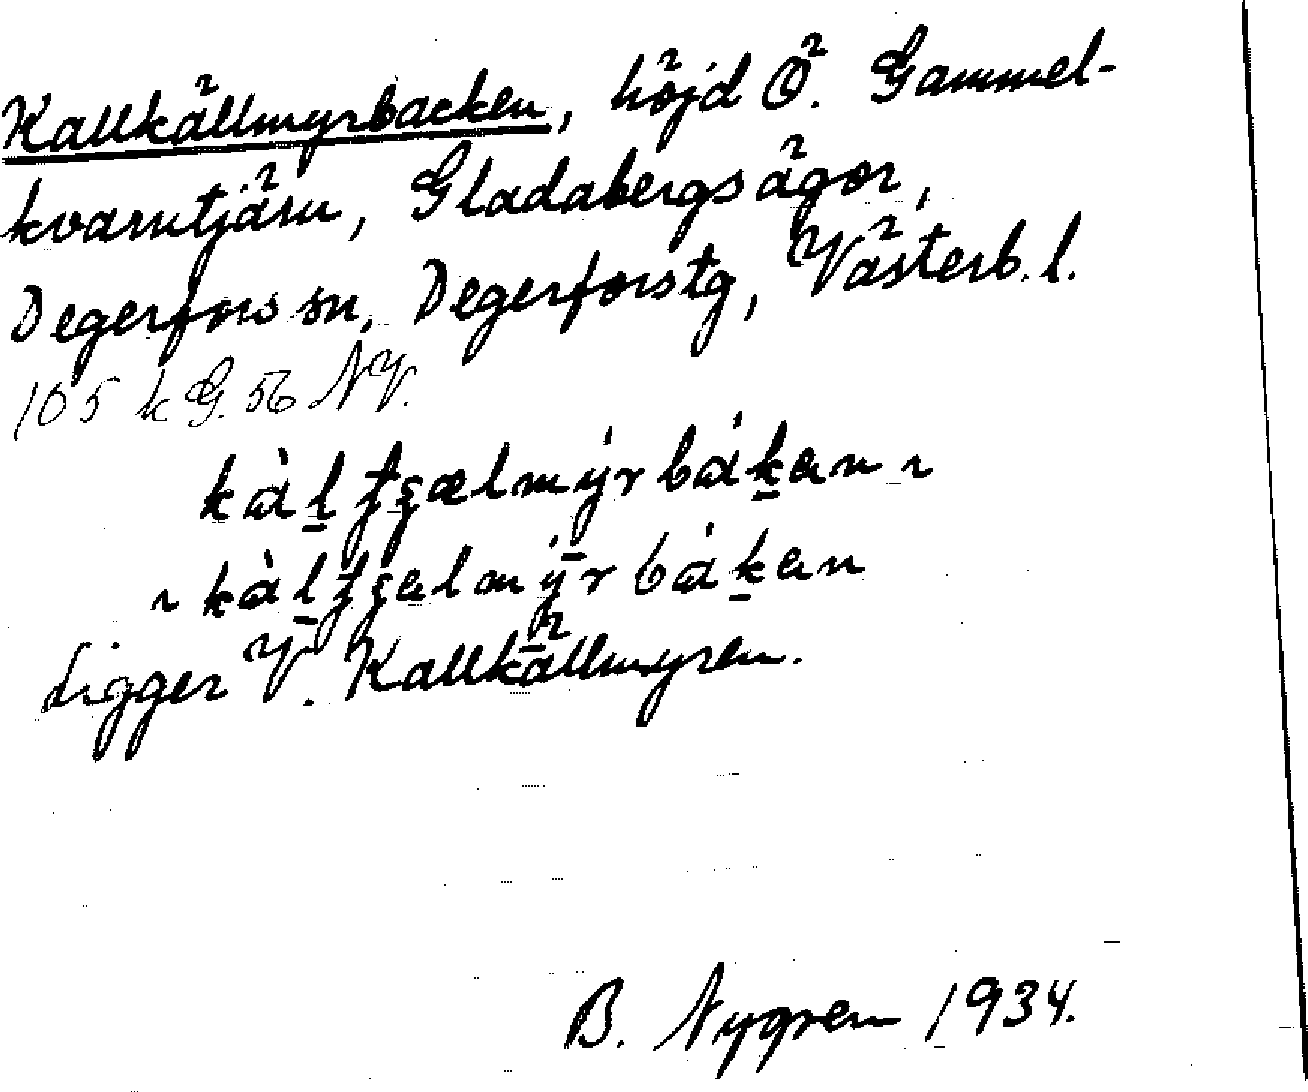 Kallkällmyrbacken, höjd Ö. Gammel-
kvarntjärn, Gladabergs ägor,
Degerfors sn, Degerfors tg, Västerb. l.
105 k G. 56 NV.
kàḷţşælmýrbákan ~
~ kàḷţşalmýrbákan
Ligger V. Kallkällmyren.
B. Nygren 1934.